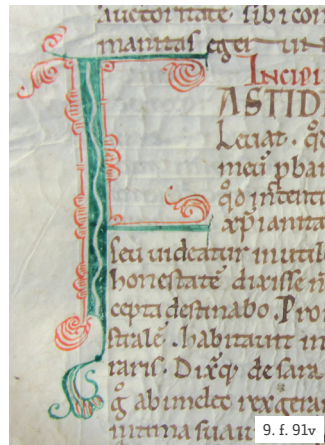 auctoritate. sibi con
manitas eget un
INCIPI
FASTID
Leuiat. qđ
meū ꝓbar
qđ intenti
xp̄ianita
seu uideatur inutil
honestatē dixisse n̄
cepta destinabo. Pro
stialē. habitauit in
raris. Dixitq; de sara
g̊ abimelec rex gerar
nitma suau
9. f. 91v